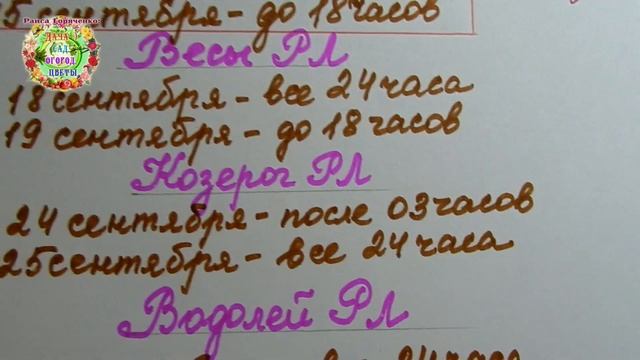 Раиса Горяченко:
ДАЧА
САД
ОГОРОД
ЦВЕТЫ
5 сентября - до 18 часов
Весы РЛ
18 сентября - все 24 часа
19 сентября - до 18 часов
Козерог РЛ
24 сентября - после 03 часов
25 сентября - все 24 часа
Водолей РЛ
24 часа